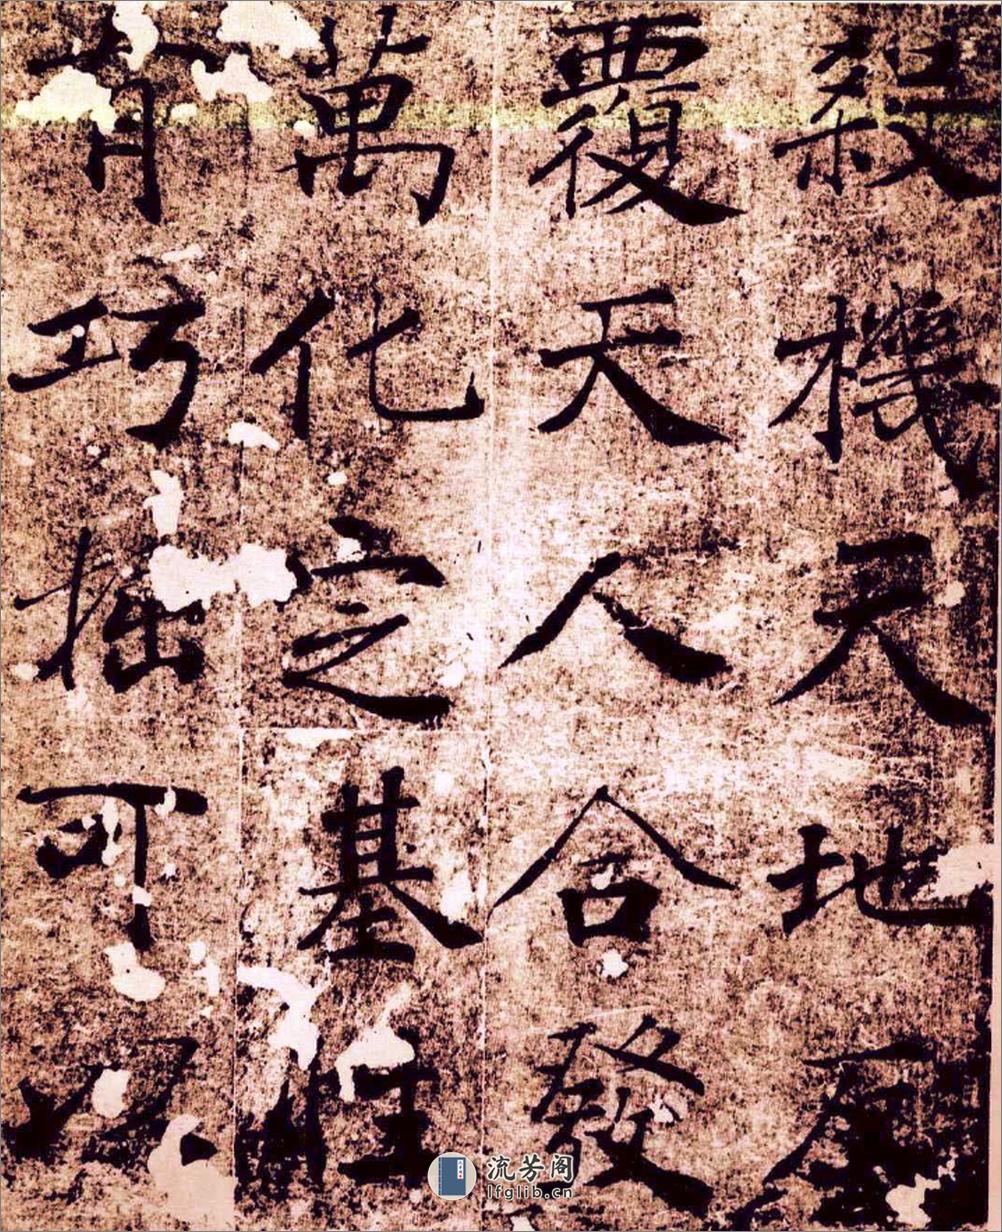 殺機天地反
覆天人合發
萬化定基性
有巧拙可以
流芳阁
lfglib.cn